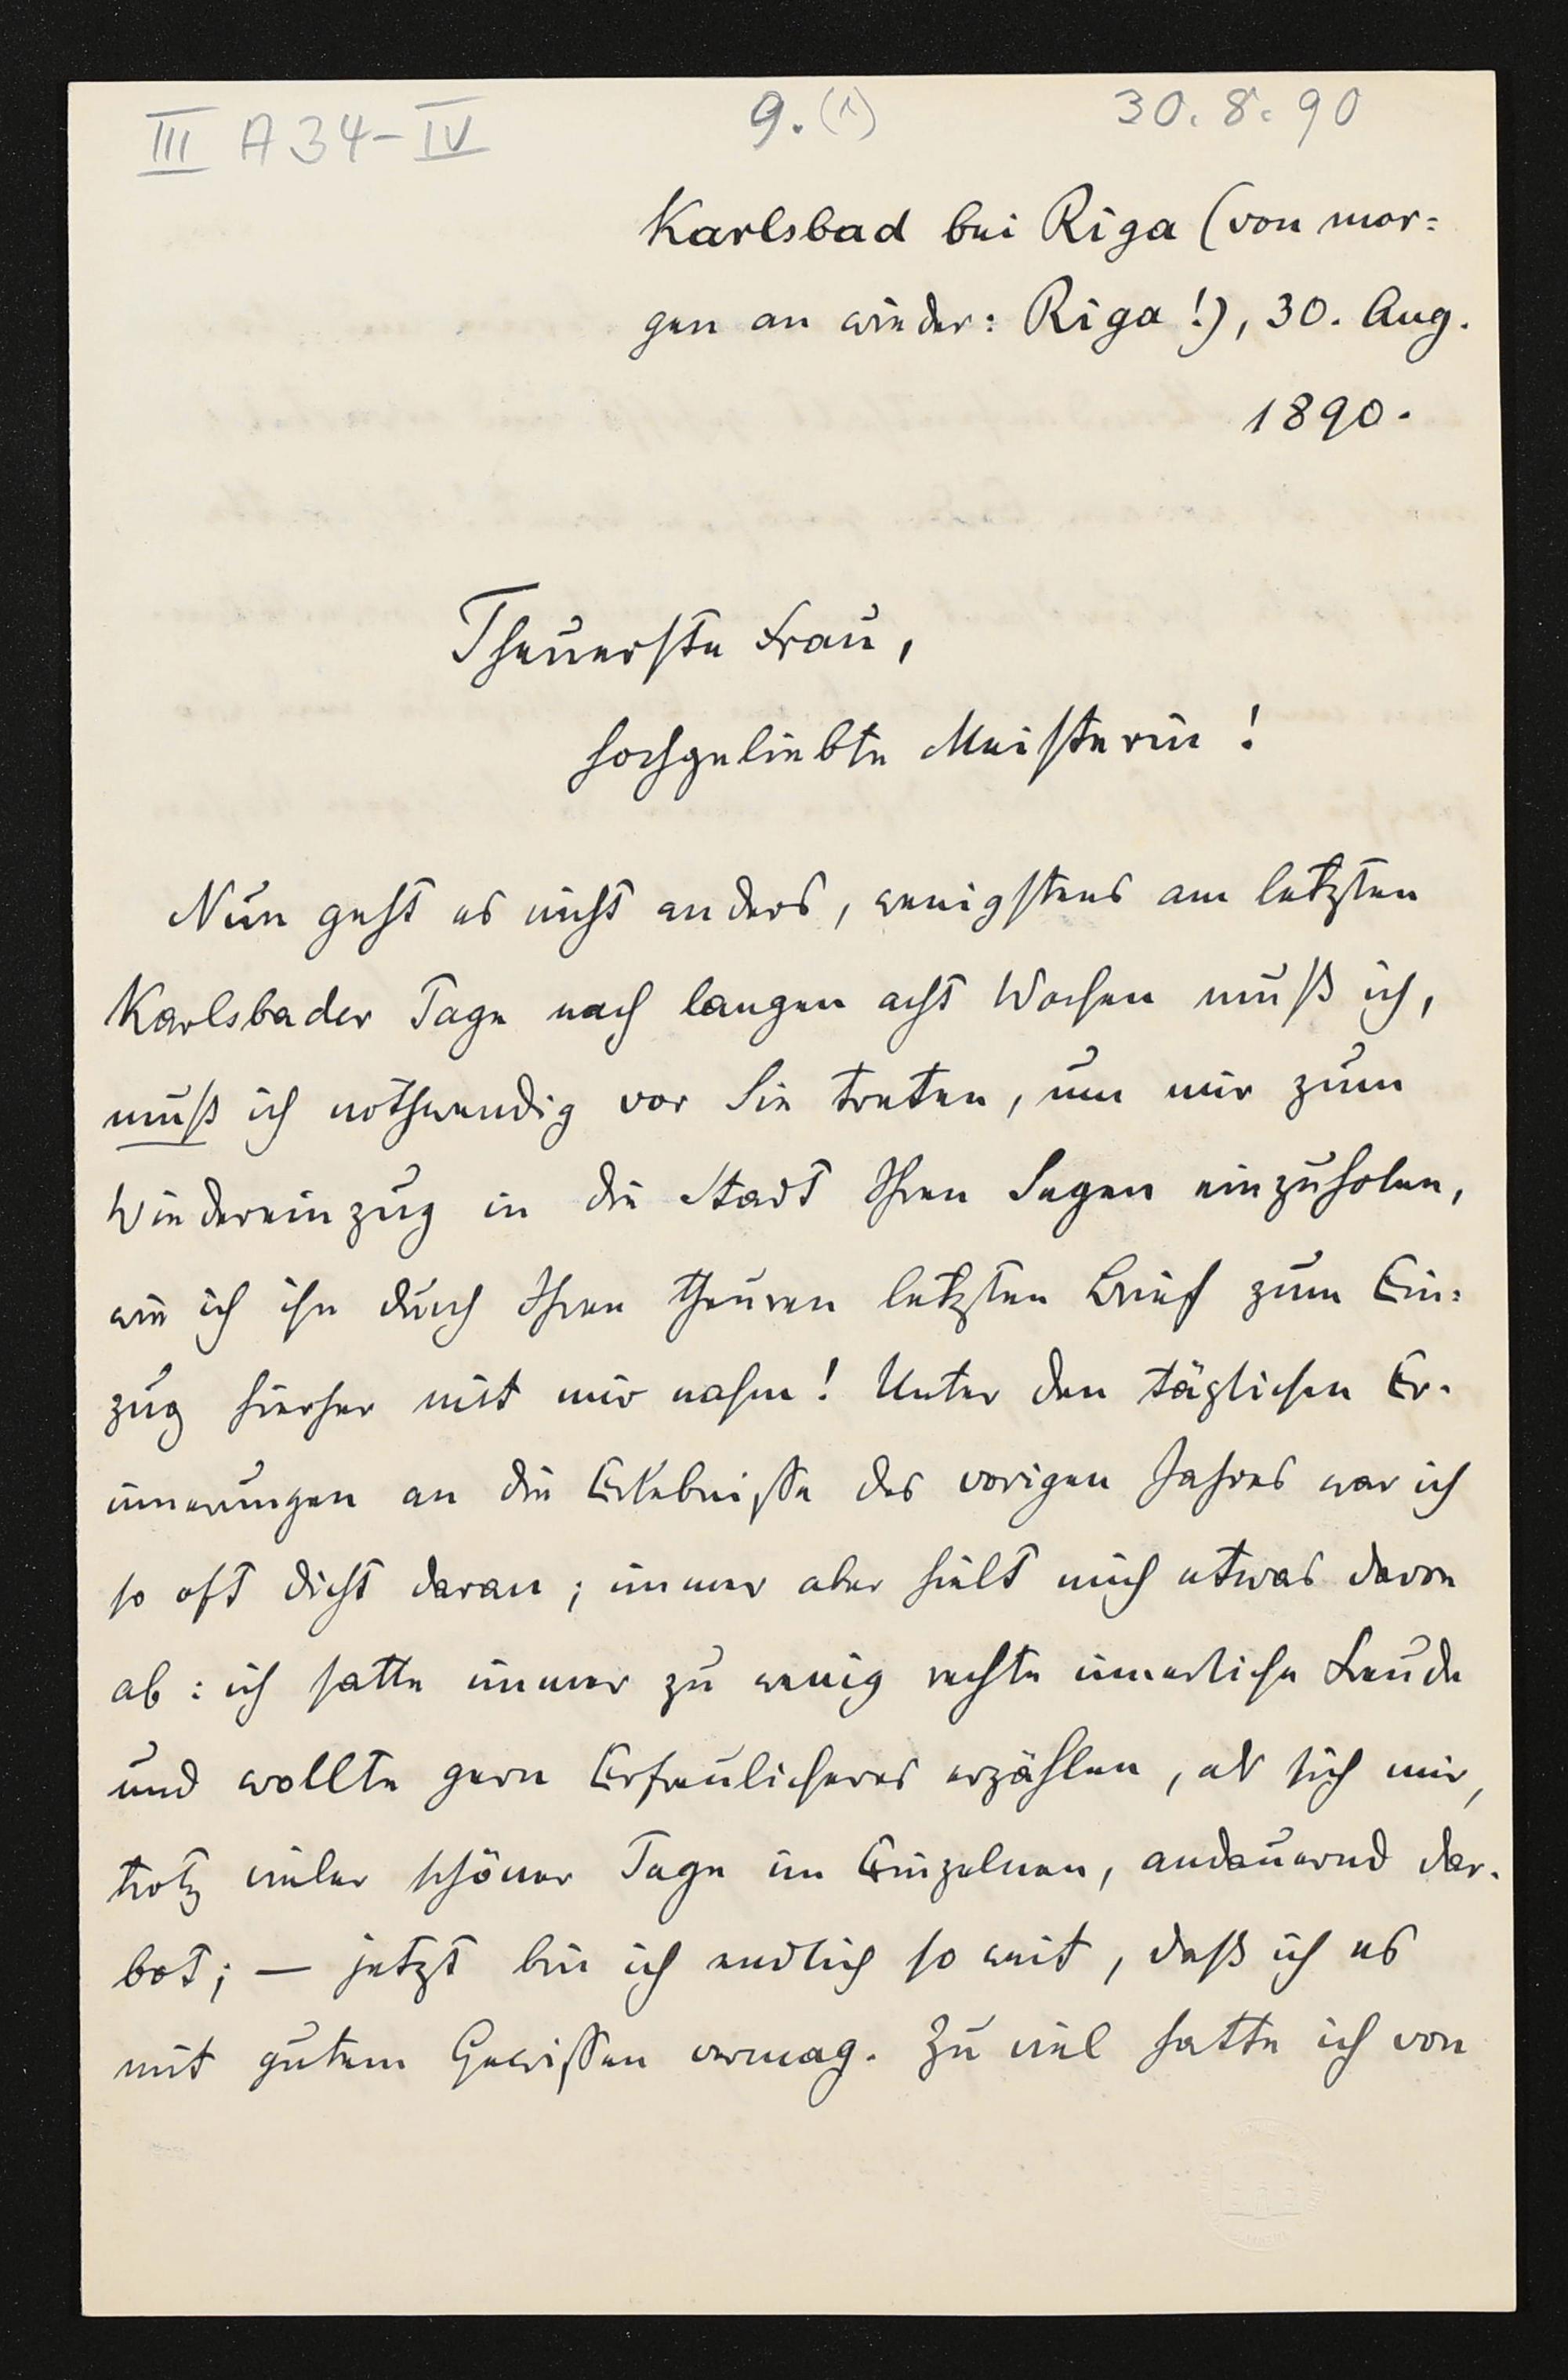 III A 34-IV
9. (1)
30. 8. 90
Karlsbad bei Riga (von mor=
gen an wieder: Riga!), 30. Aug.
1890.
Theuerste Frau,
hochgeliebte Meisterin!
Nun geht es nicht anders, wenigstens am letzten
Karlsbader Tage nach langen acht Wochen muß ich,
muß ich nothwendig vor Sie treten, um mir zum
Wiedereinzug in die Stadt Ihren Segen einzuholen,
wie ich ihn durch Ihren theuren letzten Brief zum Ein=
zug hierher mit mir nahm! Unter den täglichen Er-
innerungen an die Erlebnisse des vorigen Jahres war ich
so oft dicht daran; immer aber hielt mich etwas davon
ab: ich hatte immer zu wenig rechte innerliche Freude
und wollte gern Erfreulicheres erzählen, als sich mir,
trotz vieler schöner Tage im Einzelnen, andauernd dar-
bot; — jetzt bin ich endlich so weit, daß ich es
mit gutem Gewissen vermag. Zu viel hatte ich von